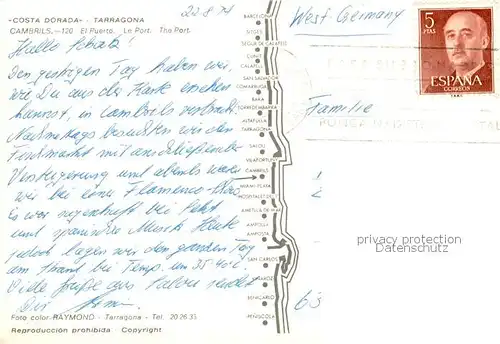 «COSTA DORADA» - TARRAGONA
CAMBRILS.—120 El Puerto. Le Port. The Port.
22.8.74
West-Germany
5
PTAS
ESPAÑA
CORREOS
Hallo Schatz!
Den gestrigen Tag haben wir,
wie Du aus der Karte ersehen
kannst, in Cambrils verbracht.
Nachmittags besuchten wir den
Fischmarkt mit anschließender
Versteigerung und abends waren
wir bei einer Flamenco-Show
Es war sagenhaft bei Sekt
und spanischer Musik. Heute
jedoch lagen wir den ganzen Tag
am Strand bei Temp. um 35-40°C.
Viele Grüße aus Salou sendet
Dir
Familie
63
BARCELONA
SITGES
SEGUR DE CALAFELL
CUNIT
CALAFELL
SAN SALVADOR
COMARRUGA
BARA
TORREDEMBARRA
ALTAFULLA
TARRAGONA
SALOU
VILAFORTUNY
CAMBRILS
MIAMI-PLAYA
HOSPITALET
AMETLLA DE MAR
AMPOLLA
AMPOSTA
SAN CARLOS
VINAROZ
BENICARLO
PEÑISCOLA
privacy protection
Datenschutz
Foto color RAYMOND - Tarragona - Tel. 20 26 33
Reproducción prohibida - Copyright.